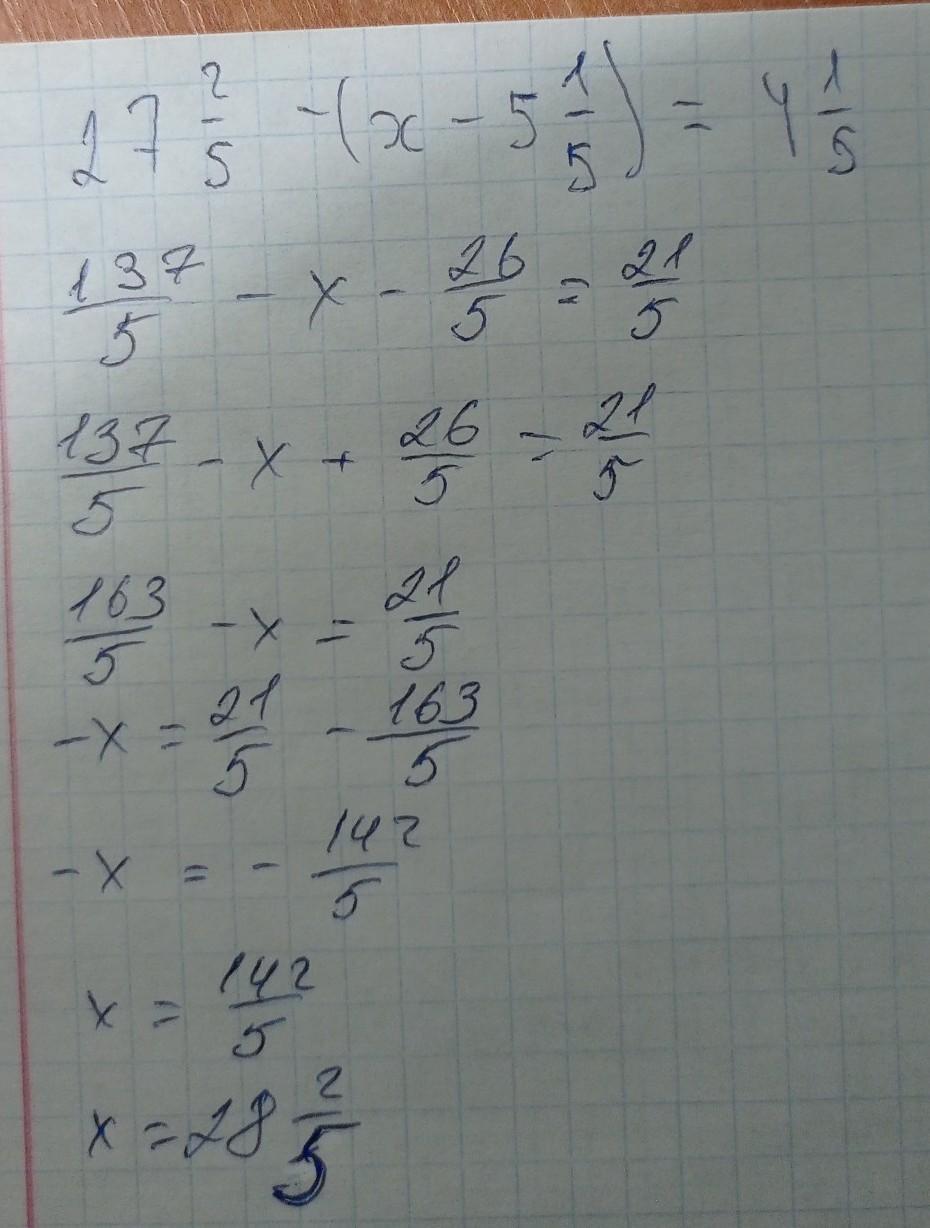 27 2/5 - (x - 5 1/5) = 4 1/5
137/5 - x - 26/5 = 21/5
137/5 - x + 26/5 = 21/5
163/5 - x = 21/5
-x = 21/5 - 163/5
-x = - 142/5
x = 142/5
x = 28 2/5